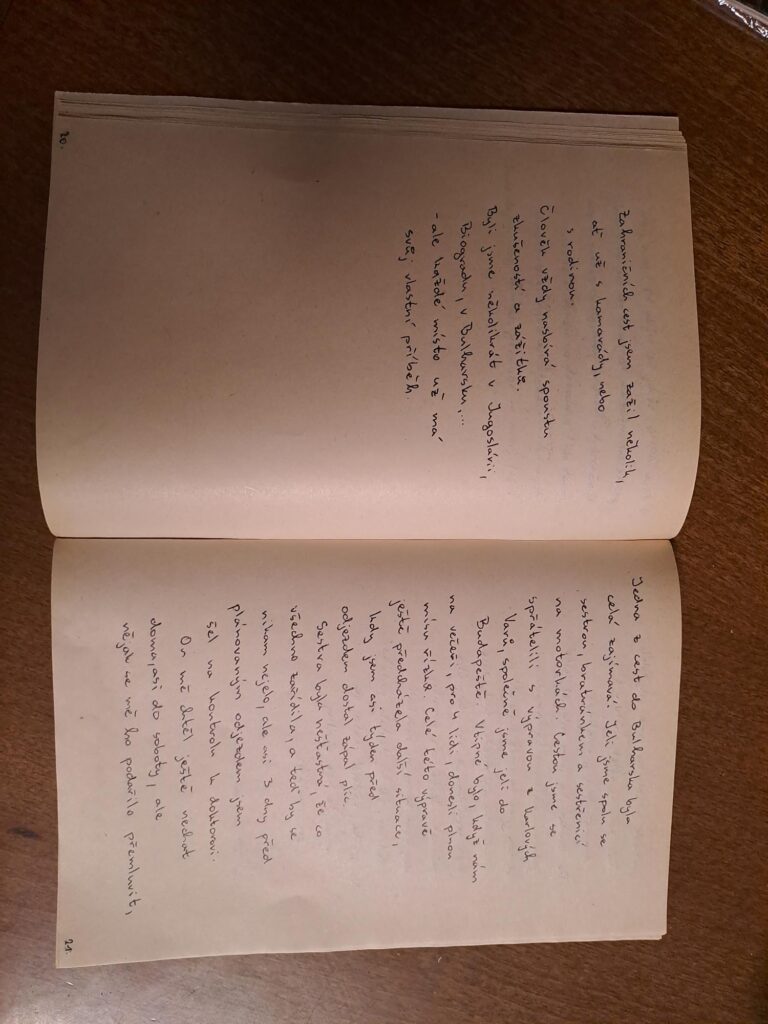 Zahraničních cest jsem zažil několik,
ať už s kamarády, nebo
s rodinou.
Člověk vždy nasbírá spoustu
zkušeností a zážitků.
Byli jsme několikrát v Jugoslávii,
Biogradu, v Bulharsku,...
- ale každé místo už má
svůj vlastní příběh.
20.
Jedna z cest do Bulharska byla
celá zajímavá. Jeli jsme spolu se
sestrou, bratránkem a sestřenicí
na motorkách. Cestou jsme se
spřátelili s výpravou z Karlových
Varů, společně jsme jeli do
Budapeště. Vtipné bylo, když nám
na večeři, pro 4 lidi, donesli plnou
mísu řízků. Celé této výpravě
ještě předcházela další situace,
kdy jsem asi týden před
odjezdem dostal zápal plic.
Sestra byla nešťastná, že co
všechno zařídila, a teď by se
nikam nejelo, ale asi 3 dny před
plánovaným odjezdem jsem
šel na kontrolu k doktorovi.
On mě chtěl ještě nechat
doma, asi do soboty, ale
nějak se mě ho podařilo přemluvit,
21.